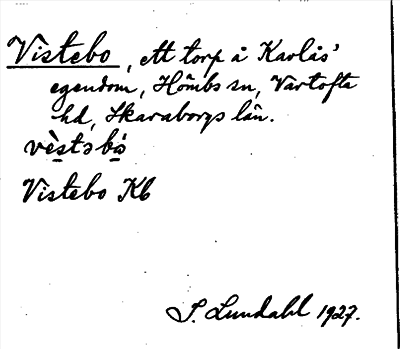 Vistebo, ett torp å Karlås'
egendom, Hömbs sn, Vartofta
hd, Skaraborgs län.
vèstɔbó
Vistebo Kb
S. Lundahl 1927.